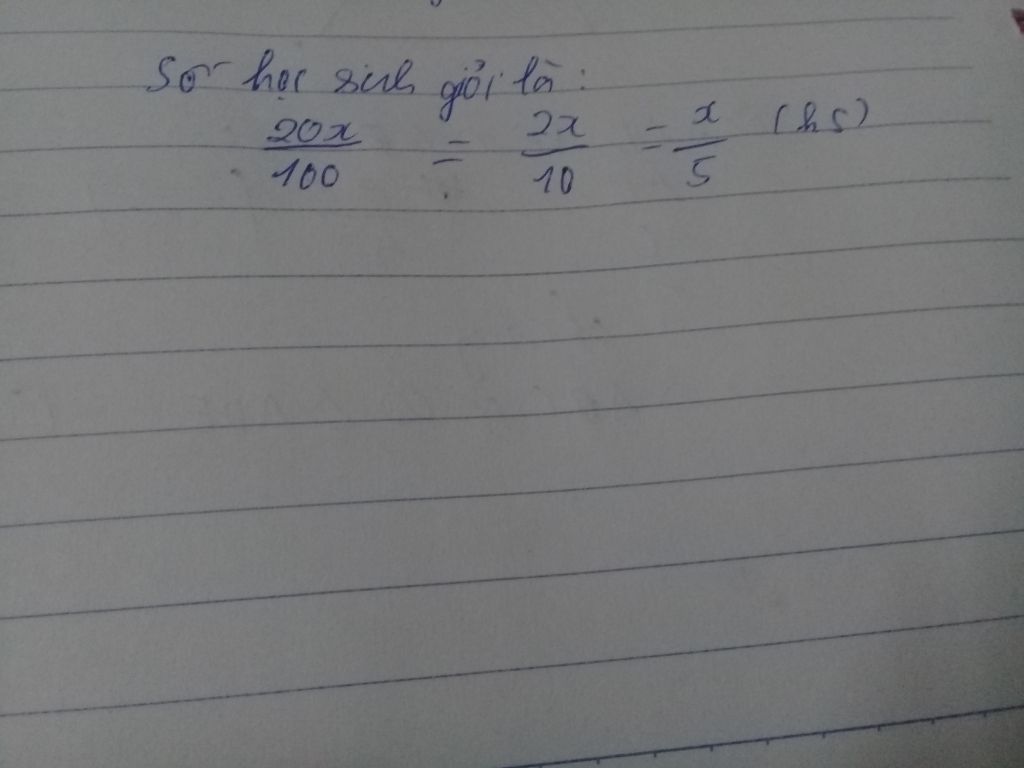 Số học sinh giỏi là:
20x/100 = 2x/10 = x/5 (hs)